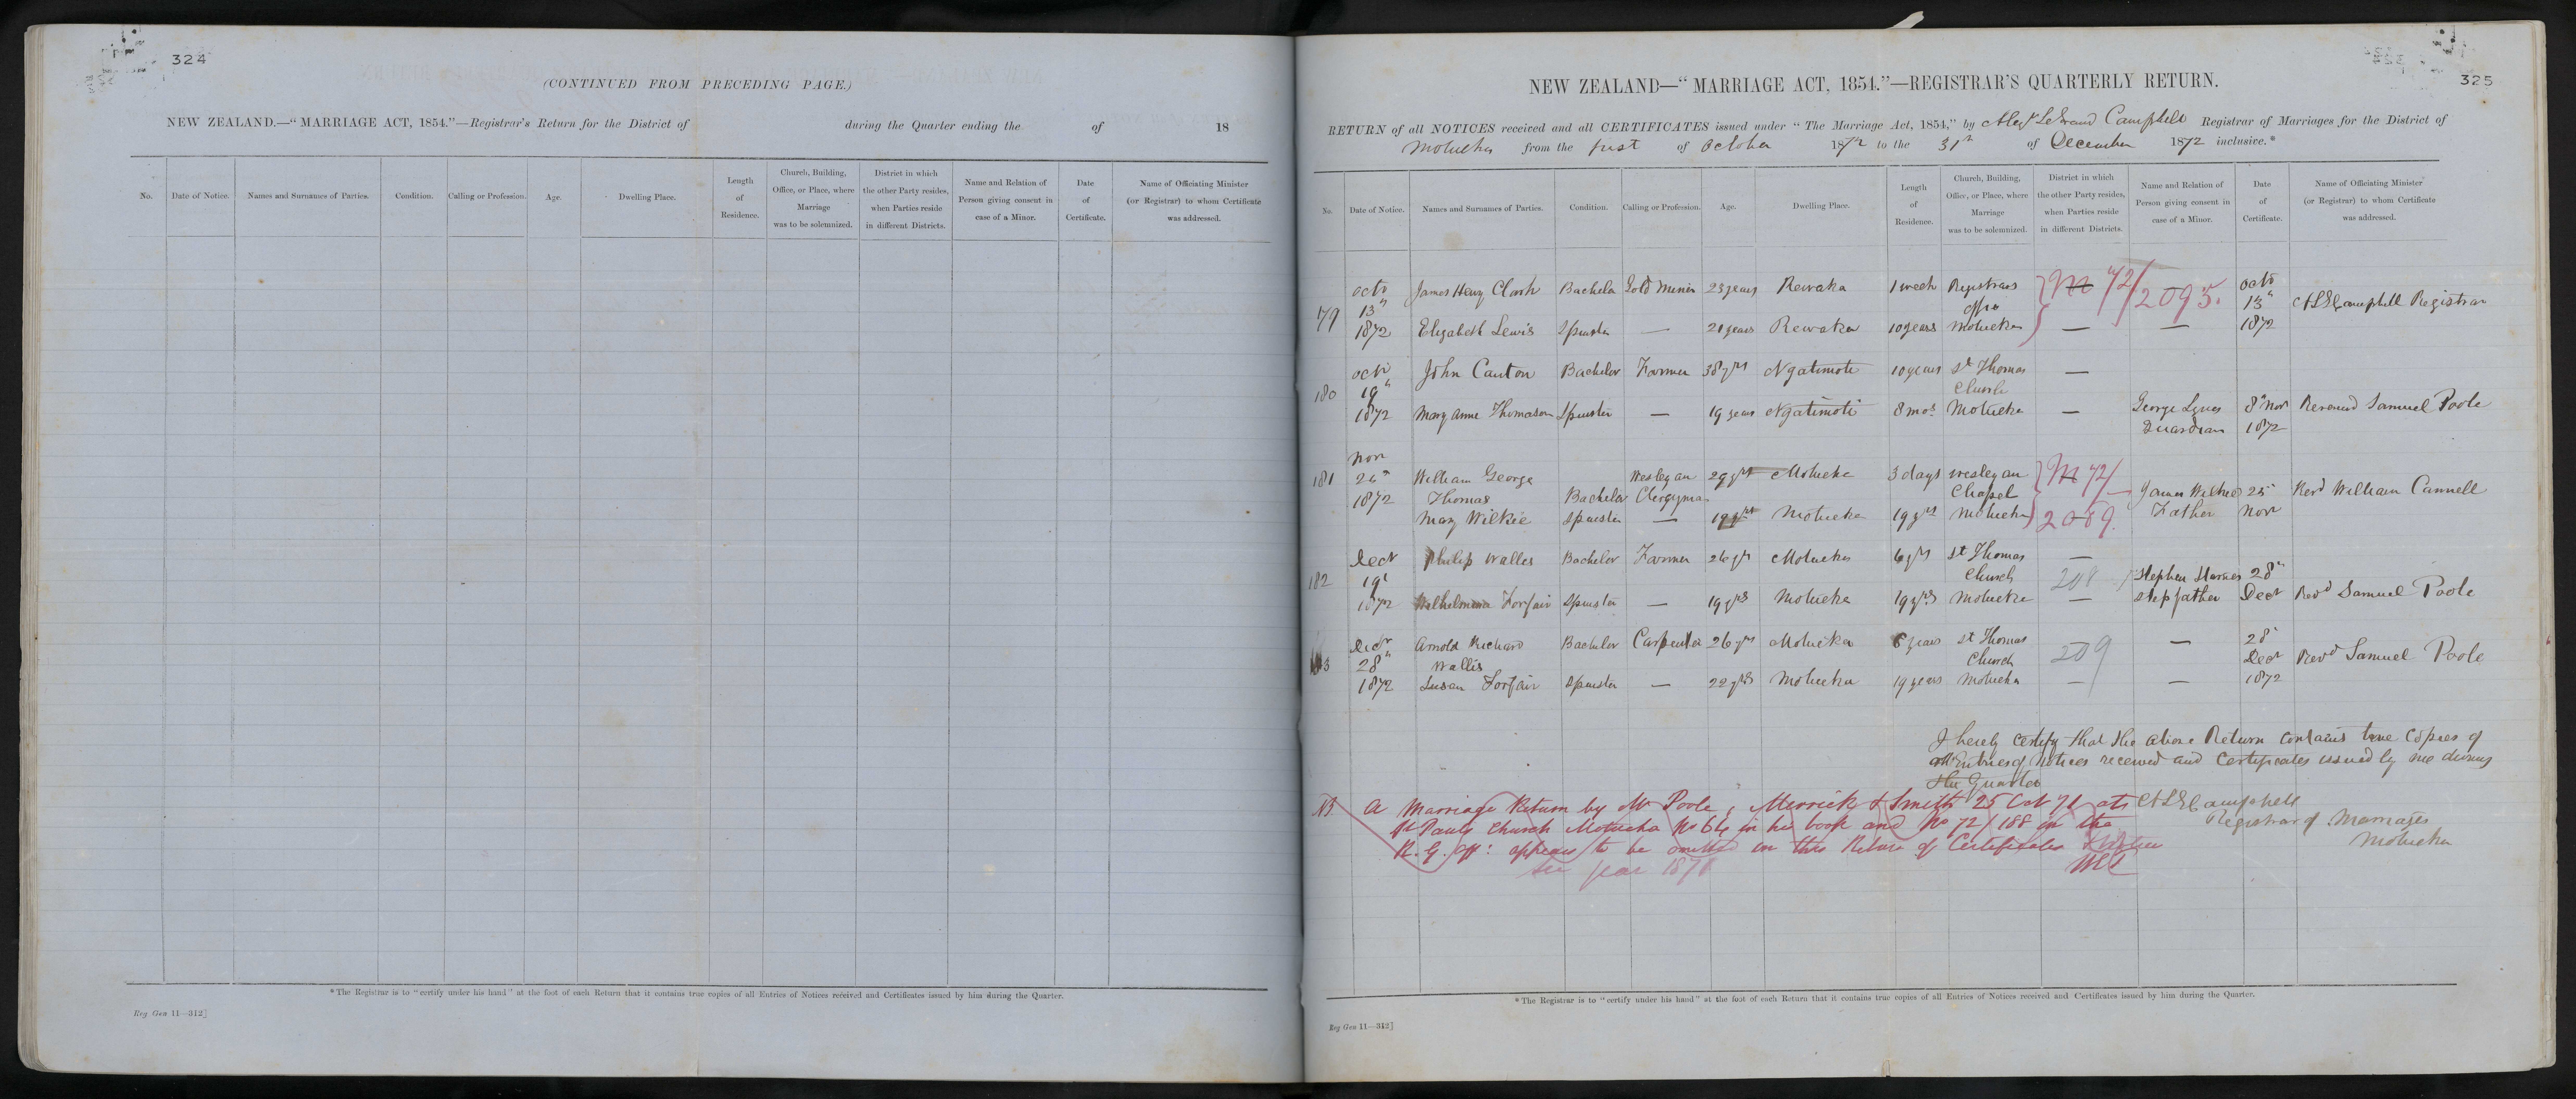 324
(CONTINUED FROM PRECEDING PAGE.)
NEW ZEALAND.—"MARRIAGE ACT, 1854."—Registrar's Return for the District of during the Quarter ending the of 18
No. Date of Notice. Names and Surnames of Parties. Condition. Calling or Profession. Age. Dwelling Place. Length of Residence. Church, Building, Office, or Place, where Marriage was to be solemnized. District in which the other Party resides, when Parties reside in different Districts. Name and Relation of Person giving consent in case of a Minor. Date of Certificate. Name of Officiating Minister (or Registrar) to whom Certificate was addressed.
*The Registrar is to "certify under his hand" at the foot of each Return that it contains true copies of all Entries of Notices received and Certificates issued by him during the Quarter.
Reg Gen 11—312]
325
NEW ZEALAND—"MARRIAGE ACT, 1854."—REGISTRAR'S QUARTERLY RETURN.
RETURN of all NOTICES received and all CERTIFICATES issued under "The Marriage Act, 1854," by Alexr LeGrand Campbell Registrar of Marriages for the District of
Motueka from the first of October 1872 to the 31st of December 1872 inclusive.*
No. Date of Notice. Names and Surnames of Parties. Condition. Calling or Profession. Age. Dwelling Place. Length of Residence. Church, Building, Office, or Place, where Marriage was to be solemnized. District in which the other Party resides, when Parties reside in different Districts. Name and Relation of Person giving consent in case of a Minor. Date of Certificate. Name of Officiating Minister (or Registrar) to whom Certificate was addressed.
Octr James Henry Clark Bachelor Gold Miner 23 years Rewaka 1 week Registrars M 72/2095. Octr
179 13" Office 13" ALGCampbell Registrar
1872 Elizabeth Lewis Spinster — 21 years Rewaka 10 years Motueka — — 1872
Octr John Canton Bachelor Farmer 38 yrs Ngatimoti 10 years St Thomas —
180 19" Church
1872 Mary Anne Thomason Spinster — 19 years Ngatimoti 8 mos Motueka — George Lynes 8" Novr Reverend Samuel Poole
Guardian 1872
Novr
181 26" William George Wesleyan 29 yrs Motueka 3 days Wesleyan M 72/
1872 Thomas Bachelor Clergyman Chapel James Wilkie 25" Revd William Cannell
Mary Wilkie Spinster — 19 yrs Motueka 19 yrs Motueka 2089. Father Novr
Decr Philip Walles Bachelor Farmer 26 yrs Motueka 6 yrs St Thomas —
182 19" Church 208 Stephen 28"
1872 Wilhelmina Forfair Spinster — 19 yrs Motueka 19 yrs Motueka — Stepfather Decr Revd Samuel Poole
Decr Arnold Richard Bachelor Carpenter 26 yrs Motueka 6 years St Thomas — 28"
183 28" Wallis Church 209 Decr Revd Samuel Poole
1872 Susan Forfair Spinster — 22 yrs Motueka 19 years Motueka — — 1872
I hereby certify that the above Return contains true copies of
all Entries of Notices received and Certificates issued by me during
the Quarter
ALGCampbell
Registrar of Marriages
Motueka
NB. A Marriage Return by Mr Poole, Merrick & Smith 25 Oct 71 at
St Pauls Church Motueka No 64 in his book and No 72/188 in the
R.G. Off: appears to be omitted in this Return of Certificates
See year 1871
*The Registrar is to "certify under his hand" at the foot of each Return that it contains true copies of all Entries of Notices received and Certificates issued by him during the Quarter.
Reg Gen 11—312]